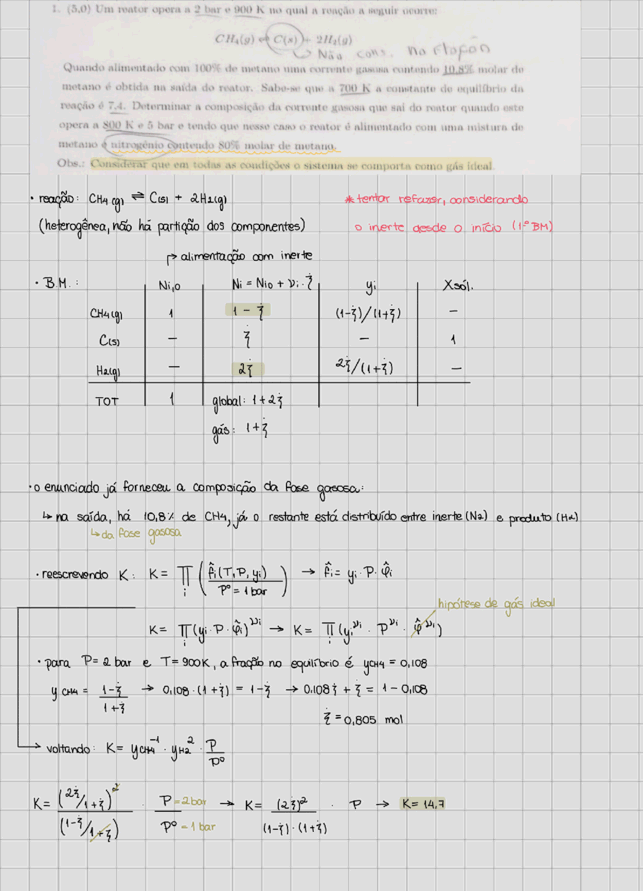 1. (5,0) Um reator opera a 2 bar e 900 K no qual a reação a seguir ocorre:
CH₄(g) ⇌ C(s) + 2H₂(g)
↳ Não cons. na fração
Quando alimentado com 100% de metano uma corrente gasosa contendo 10,8% molar de
metano é obtida na saída do reator. Sabe-se que a 700 K a constante de equilíbrio da
reação é 7,4. Determinar a composição da corrente gasosa que sai do reator quando este
opera a 800 K e 5 bar e tendo que nesse caso o reator é alimentado com uma mistura de
metano e nitrogênio contendo 80% molar de metano.
Obs.: Considerar que em todas as condições o sistema se comporta como gás ideal.
• reação: CH₄(g) ⇌ C(s) + 2H₂(g)
* tentar refazer, considerando
(heterogênea, não há partição dos componentes)
o inerte desde o início (1º BM)
↱ alimentação com inerte
• B.M.: Ni,0 Ni = Ni0 + νi·ξ yi Xsól.
CH₄(g) 1 1 - ξ (1-ξ)/(1+ξ) -
C(s) - ξ - 1
H₂(g) - 2ξ 2ξ/(1+ξ) -
TOT 1 global: 1+2ξ
gás: 1+ξ
• o enunciado já forneceu a composição da fase gasosa:
↳ na saída, há 10,8% de CH₄, já o restante está distribuído entre inerte (N₂) e produto (H₂)
↳ da fase gasosa
• reescrevendo K: K = ∏i (f̂i(T,P,yi) / P° = 1 bar) → f̂i = yi·P·φ̂i
hipótese de gás ideal
K = ∏i (yi·P·φ̂i)^νi → K = ∏i (yi^νi · P^νi · φ̂^νi)
• para P = 2 bar e T = 900K, a fração no equilíbrio é yCH4 = 0,108
yCH4 = (1-ξ)/(1+ξ) → 0,108·(1+ξ) = 1-ξ → 0,108ξ + ξ = 1 - 0,108
ξ = 0,805 mol
↳ voltando: K = yCH4⁻¹ · yH2² · P/P°
K = (2ξ/1+ξ)² / (1-ξ/1+ξ) · P = 2 bar / P° = 1 bar → K = (2ξ)² / (1-ξ)·(1+ξ) · P → K = 14,7